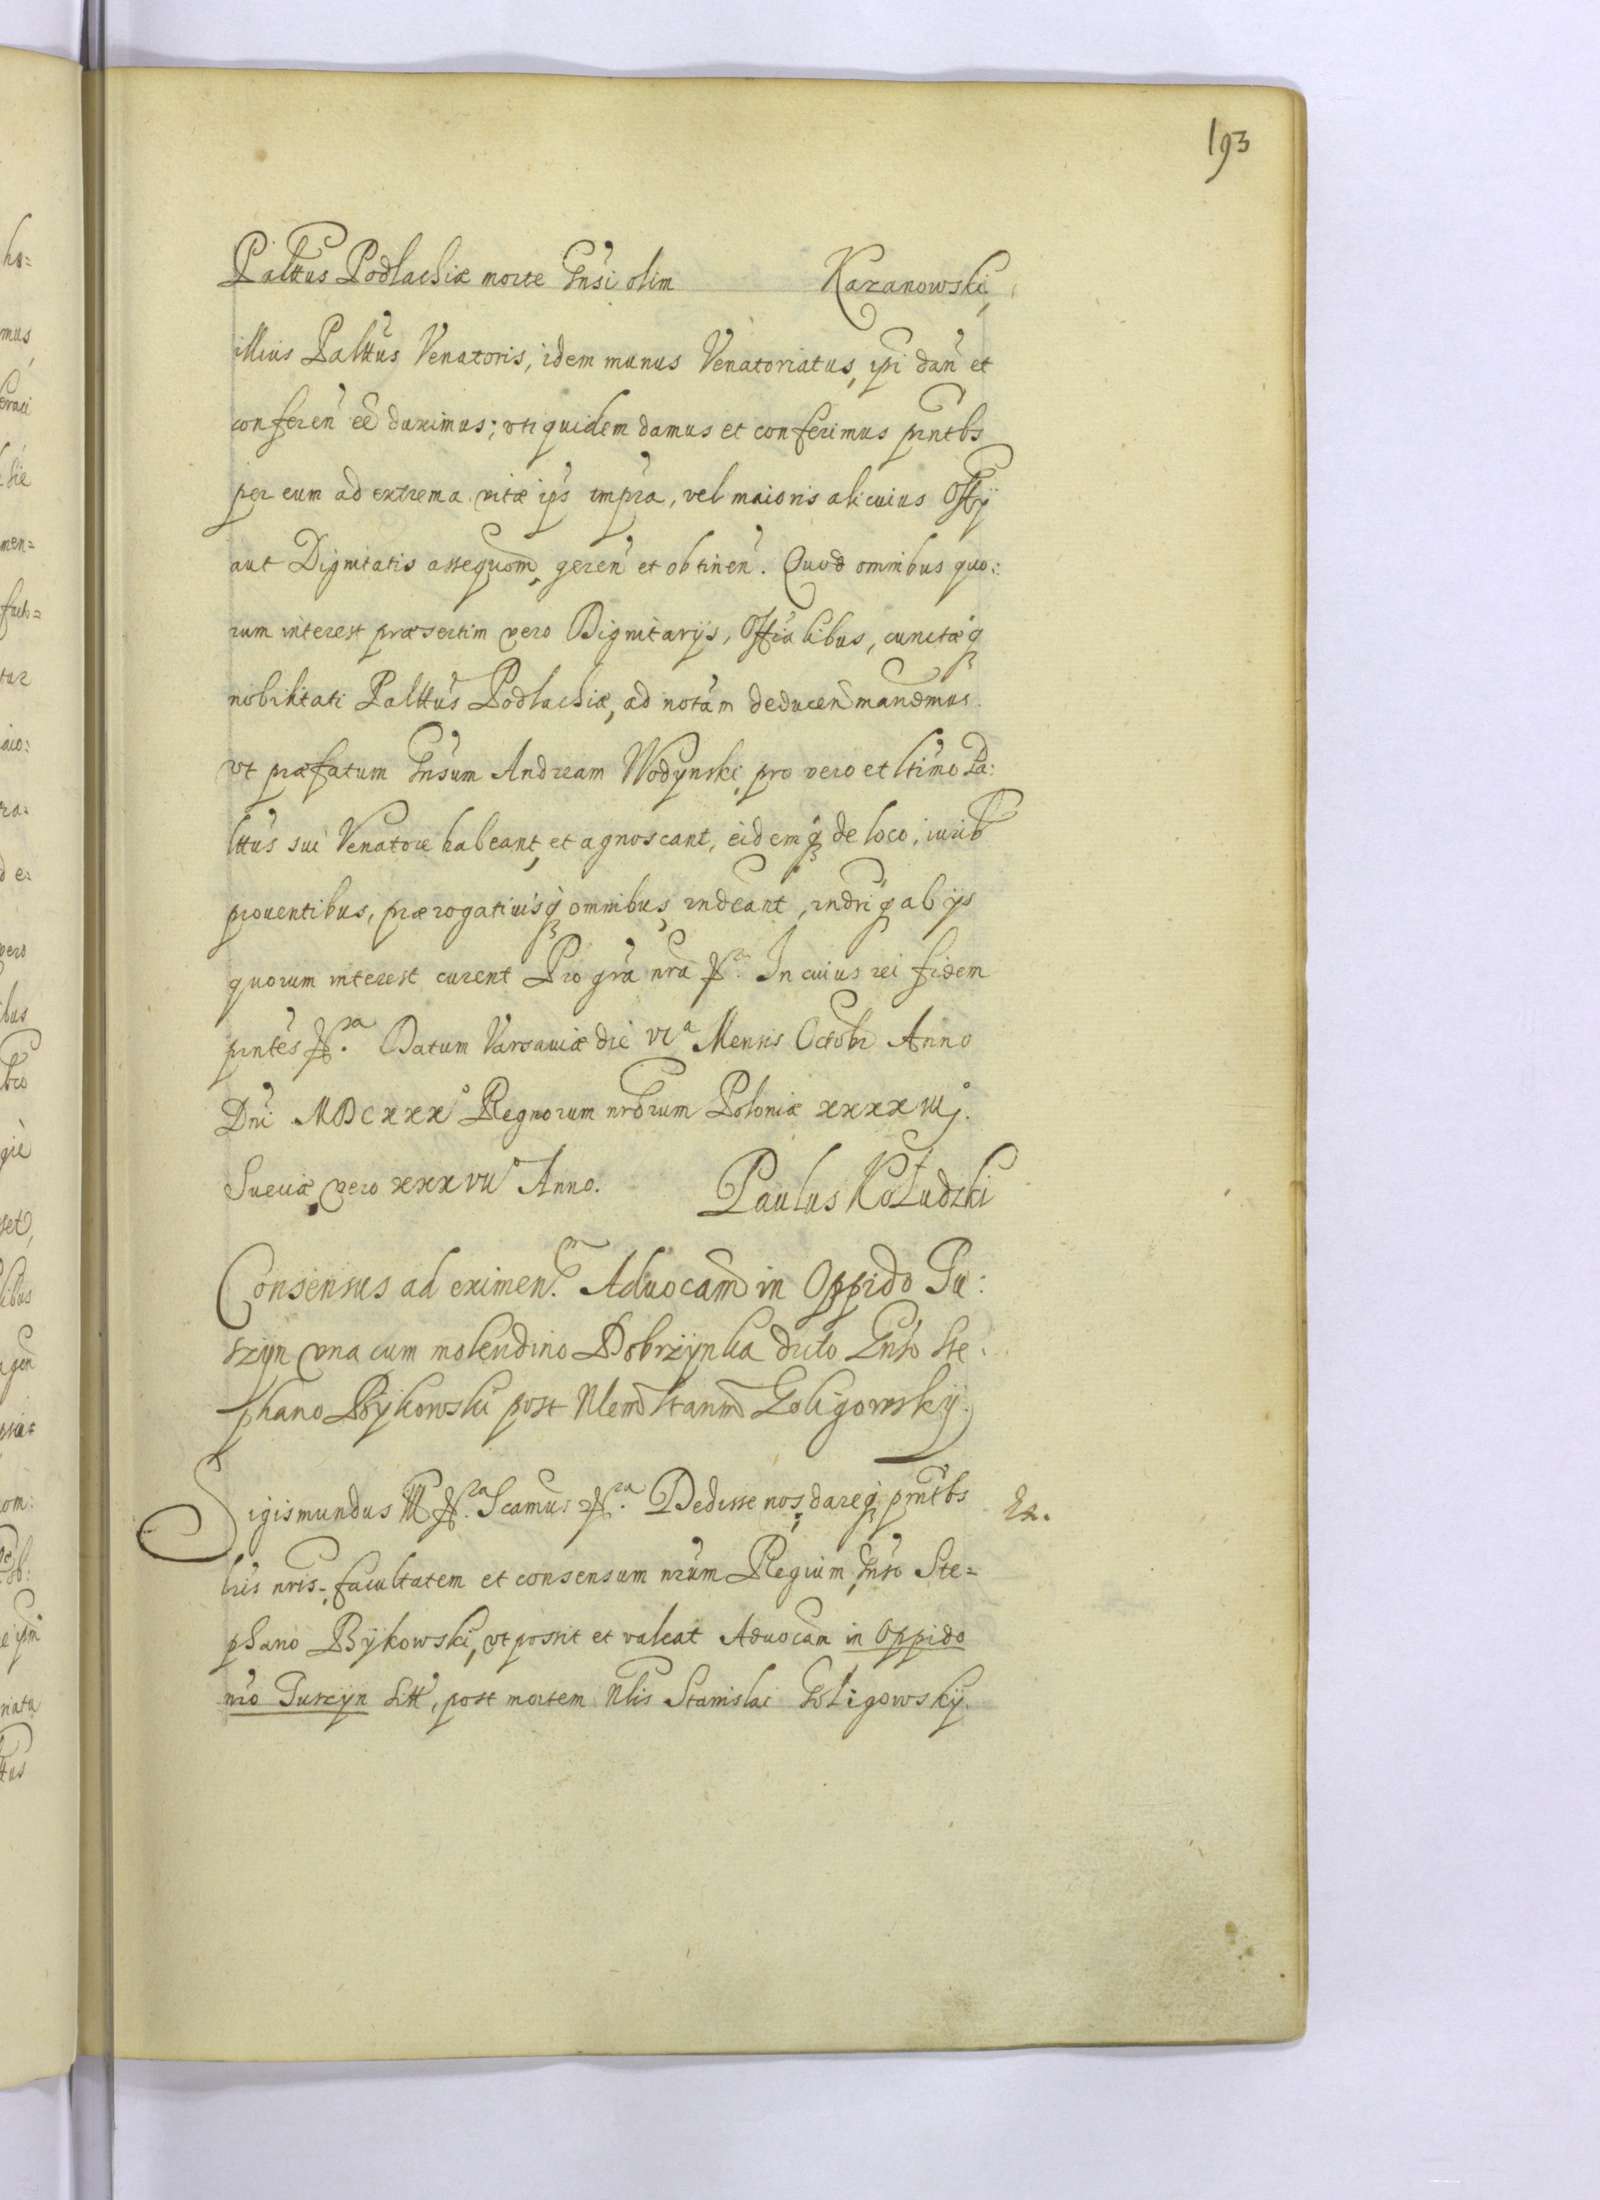 193
Palttus Podlachiæ morte Gnsi olim Kazanowski,
illius Palttus Venatoris, idem munus Venatoriatus, ipi dan et
conferen eē duximus; uti quidem damus et conferimus pntbs
per eum ad extrema vitæ ips tmpra, vel maioris alicuius Offij
aut Dignitatis assequom, geren et obtinen. Quod omnibus quo:
rum interest præsertim vero Dignitarijs, Offialibus, cunctæq
nobilitati Palttus Podlachiæ, ad notam deducen mandmus.
vt præfatum Gnsum Andream Wodynski pro vero et ltimo Pa:
lttus sui Venatore habeant, et agnoscant, eidemq de loco, iurib
prouentibus, prærogatiuisq omnibus rndeant, rndriq ab ijs
quorum interest curent Pro gra nra &ca. In cuius rei fidem
pntes &ca. Datum Varsauiæ die VIa Mensis Octobr Anno
Dni MDCXXXo Regnorum nrorum Poloniæ xxxxiij.
Sueciæ vero xxxvii Anno. Paulus Kołudzki
Consensus ad eximen. Aduocam in Oppido Tu:
szyn vna cum molendino Dobrzynka dicto Gnso Ste:
phano Bykowski post Nlem Stanm Goligowskij.
Sigismundus III &ca. Scamus &ca. Dedisse nos, dareq pntbs
lris nris, facultatem et consensum nrum Regium, Gnso Ste=
phano Bykowski, vt possit et valeat Aduocam in Oppido
nro Tuszyn sitt, post mortem Nlis Stanislai Goligowskij.